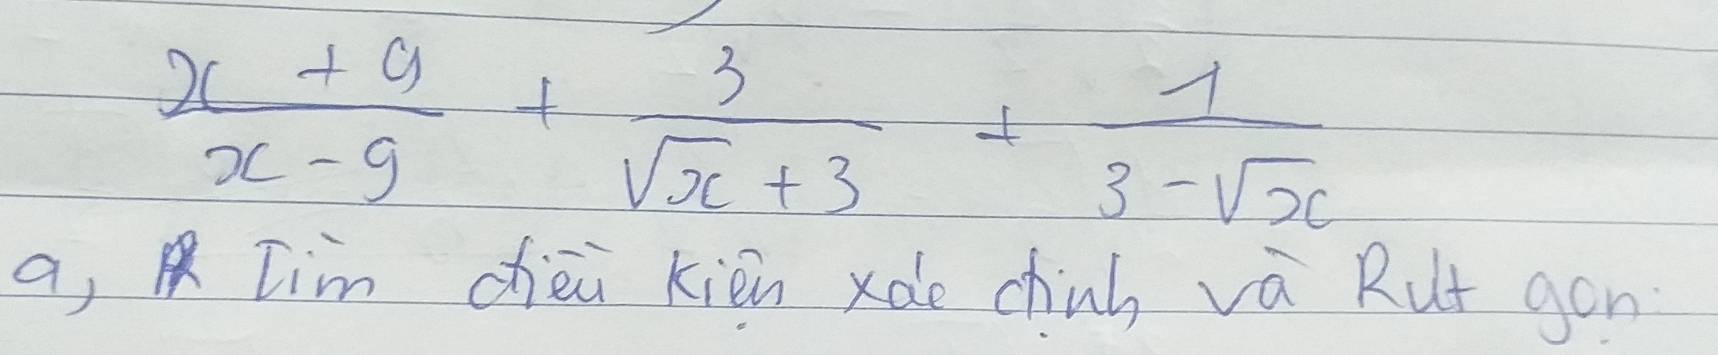 x + 9 / x - 9 + 3 / √x + 3 + 1 / 3 - √x
a, Tìm điều kiện xác định và Rút gọn.